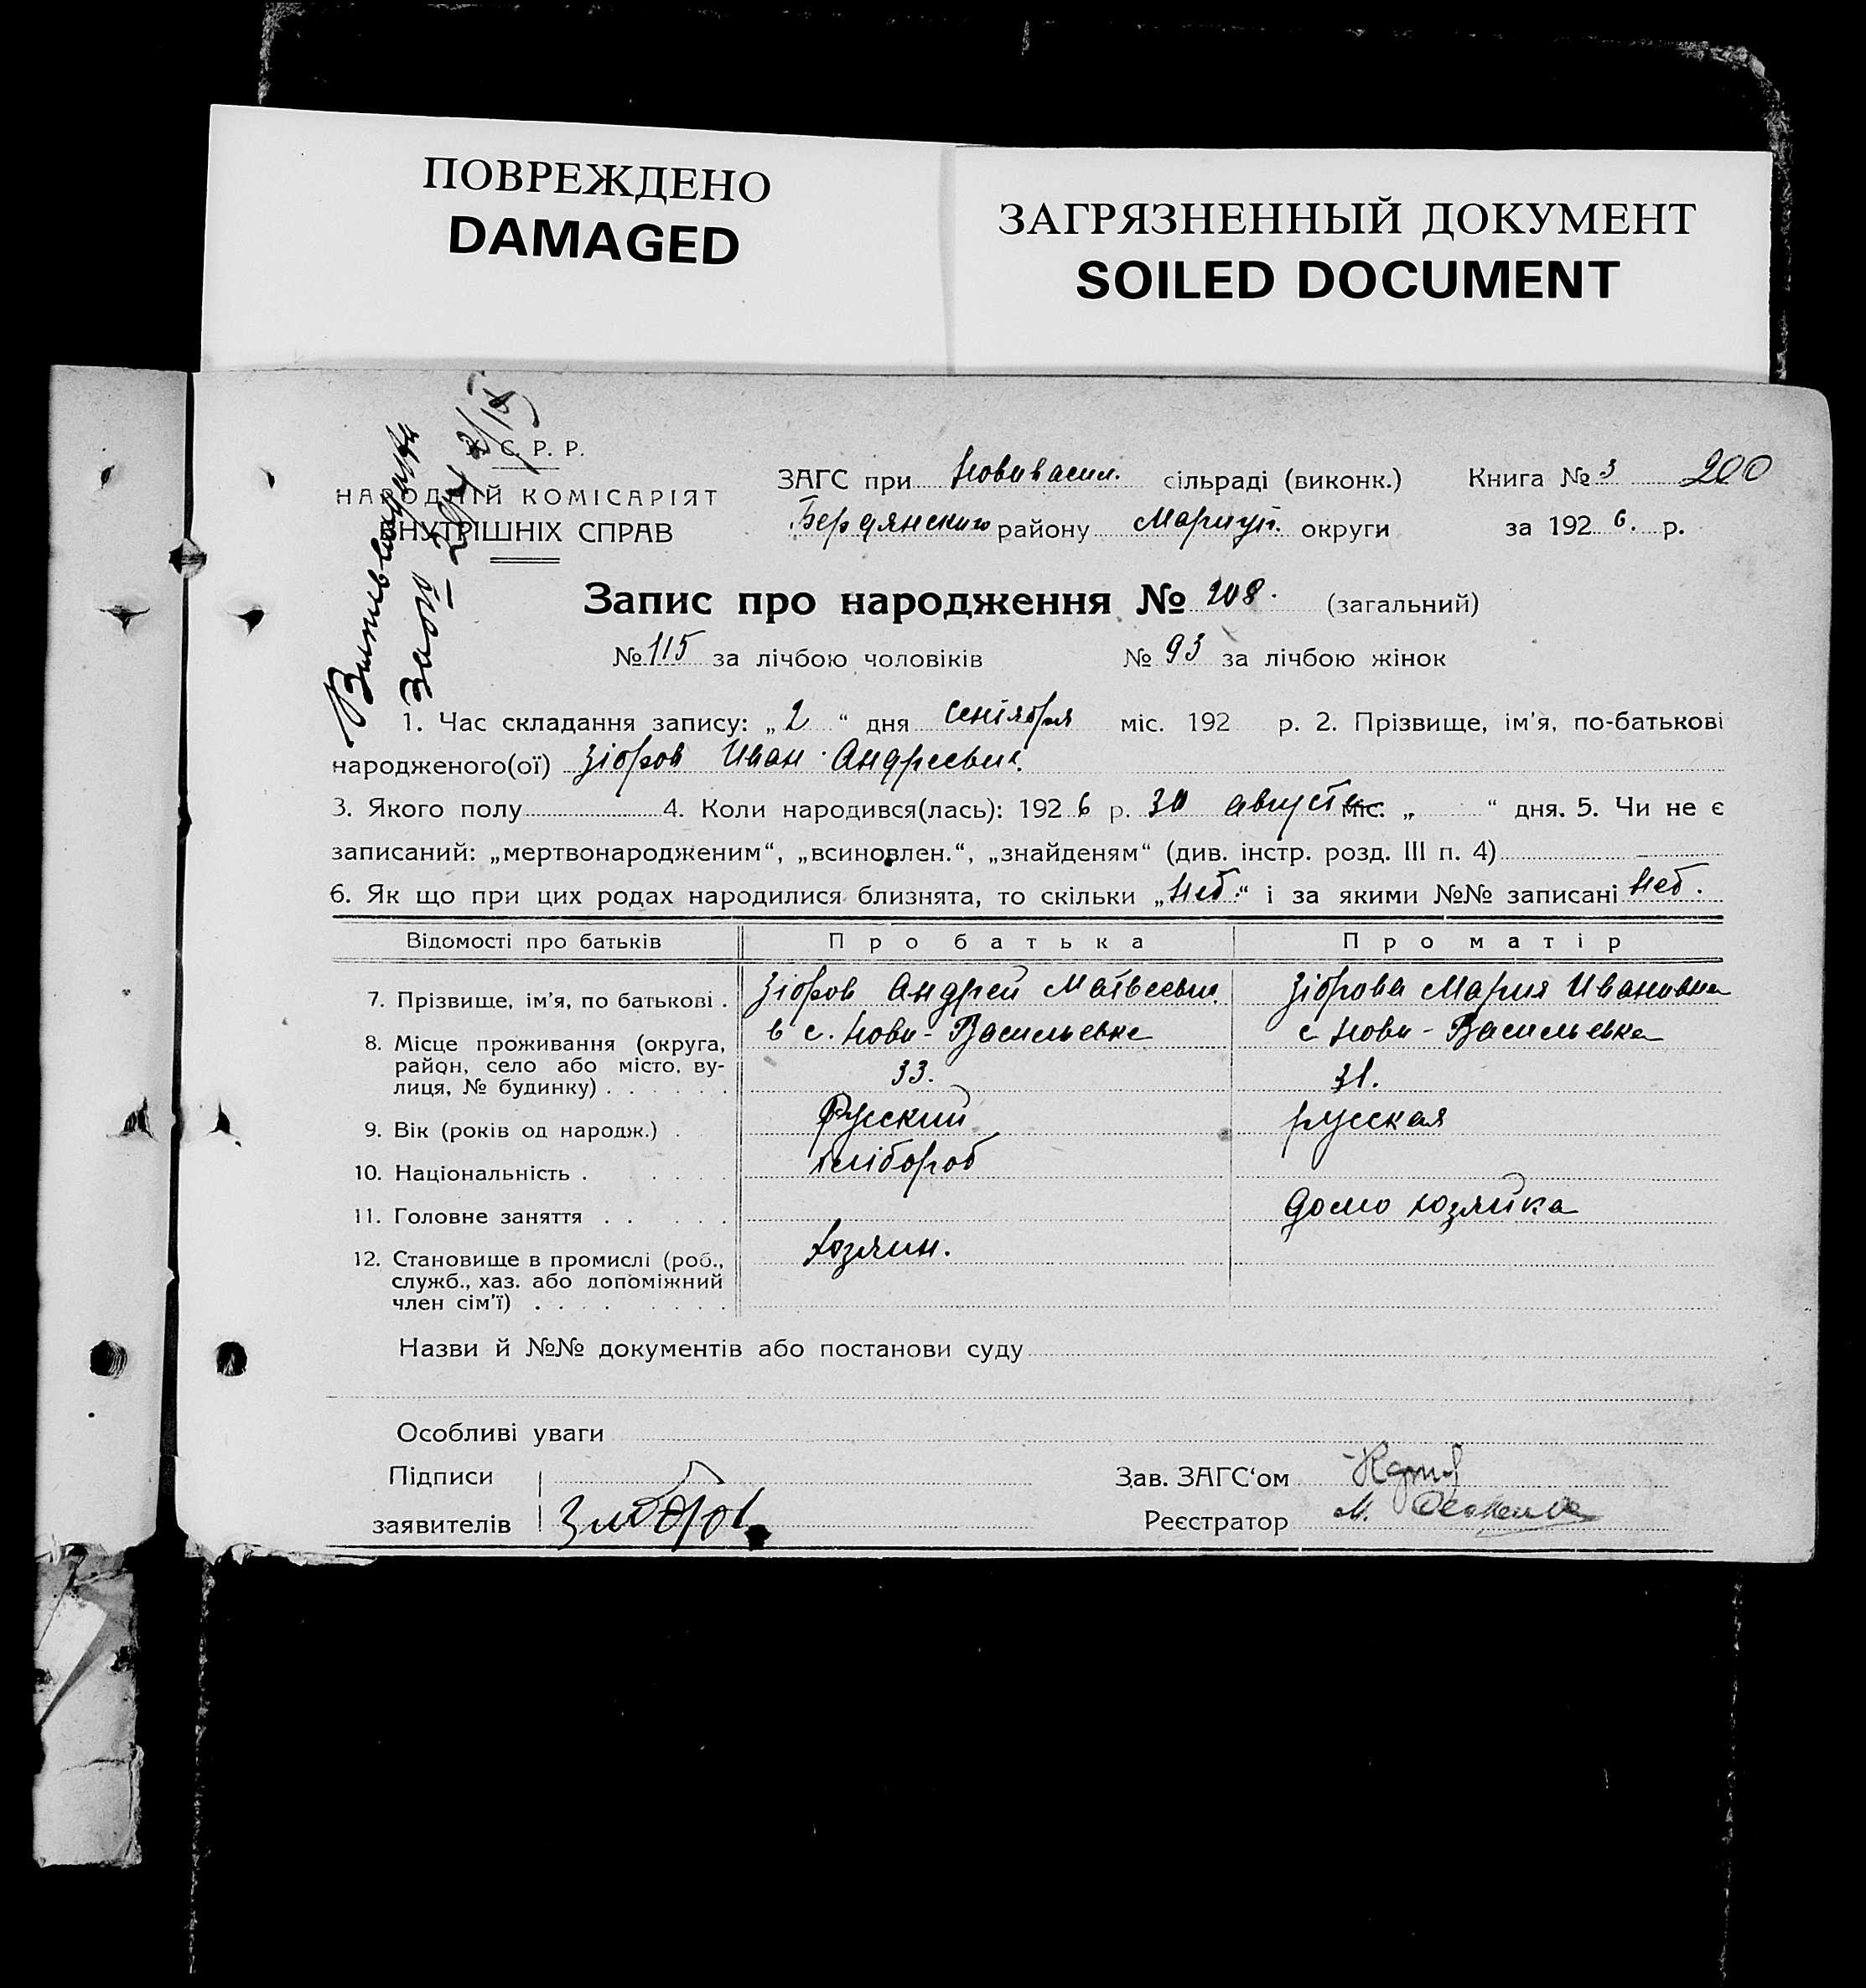 ПОВРЕЖДЕНО
DAMAGED
ЗАГРЯЗНЕННЫЙ ДОКУМЕНТ
SOILED DOCUMENT
С. Р. Р.
НАРОДНІЙ КОМІСАРІЯТ
ВНУТРІШНІХ СПРАВ
ЗАГС при Нововасил. сільраді (виконк.) Книга № 3 200
Бердянского району Мариуп. округи за 1926. р.
Запис про народження № 208. (загальний)
№ 115 за лічбою чоловіків № 93 за лічбою жінок
1. Час складання запису: „2“ дня сентября міс. 192 р. 2. Прізвище, ім'я, по-батькові
народженого(ої) Зібров Иван Андреевич.
3. Якого полу 4. Коли народився(лась): 1926 р. 30 августа міс. „ “ дня. 5. Чи не є
записаний: „мертвонародженим“, „всиновлен.“, „знайденям“ (див. інстр. розд. III п. 4)
6. Як що при цих родах народилися близнята, то скільки „Нет.“ і за якими №№ записані Нет.
Відомості про батьків Про батька Про матір
7. Прізвище, ім'я, по батькові . Зібров Андрей Матвеевич Зіброва Мария Ивановна
8. Місце проживання (округа, в с. Ново-Васильевке с Ново-Васильевка
район, село або місто, ву-
лиця, № будинку) . . . . . 33. 31.
9. Вік (років од народж.) . Русский русская
10. Національність . . . . . хлібороб
11. Головне заняття . . . . . домо хозяйка
12. Становище в промислі (роб., хозяин.
служб., хаз. або допоміжний
член сім'ї) . . . . . . . .
Назви й №№ документів або постанови суду
Особливі уваги
Підписи
заявителів
Зав. ЗАГС‘ом
Реєстратор М.